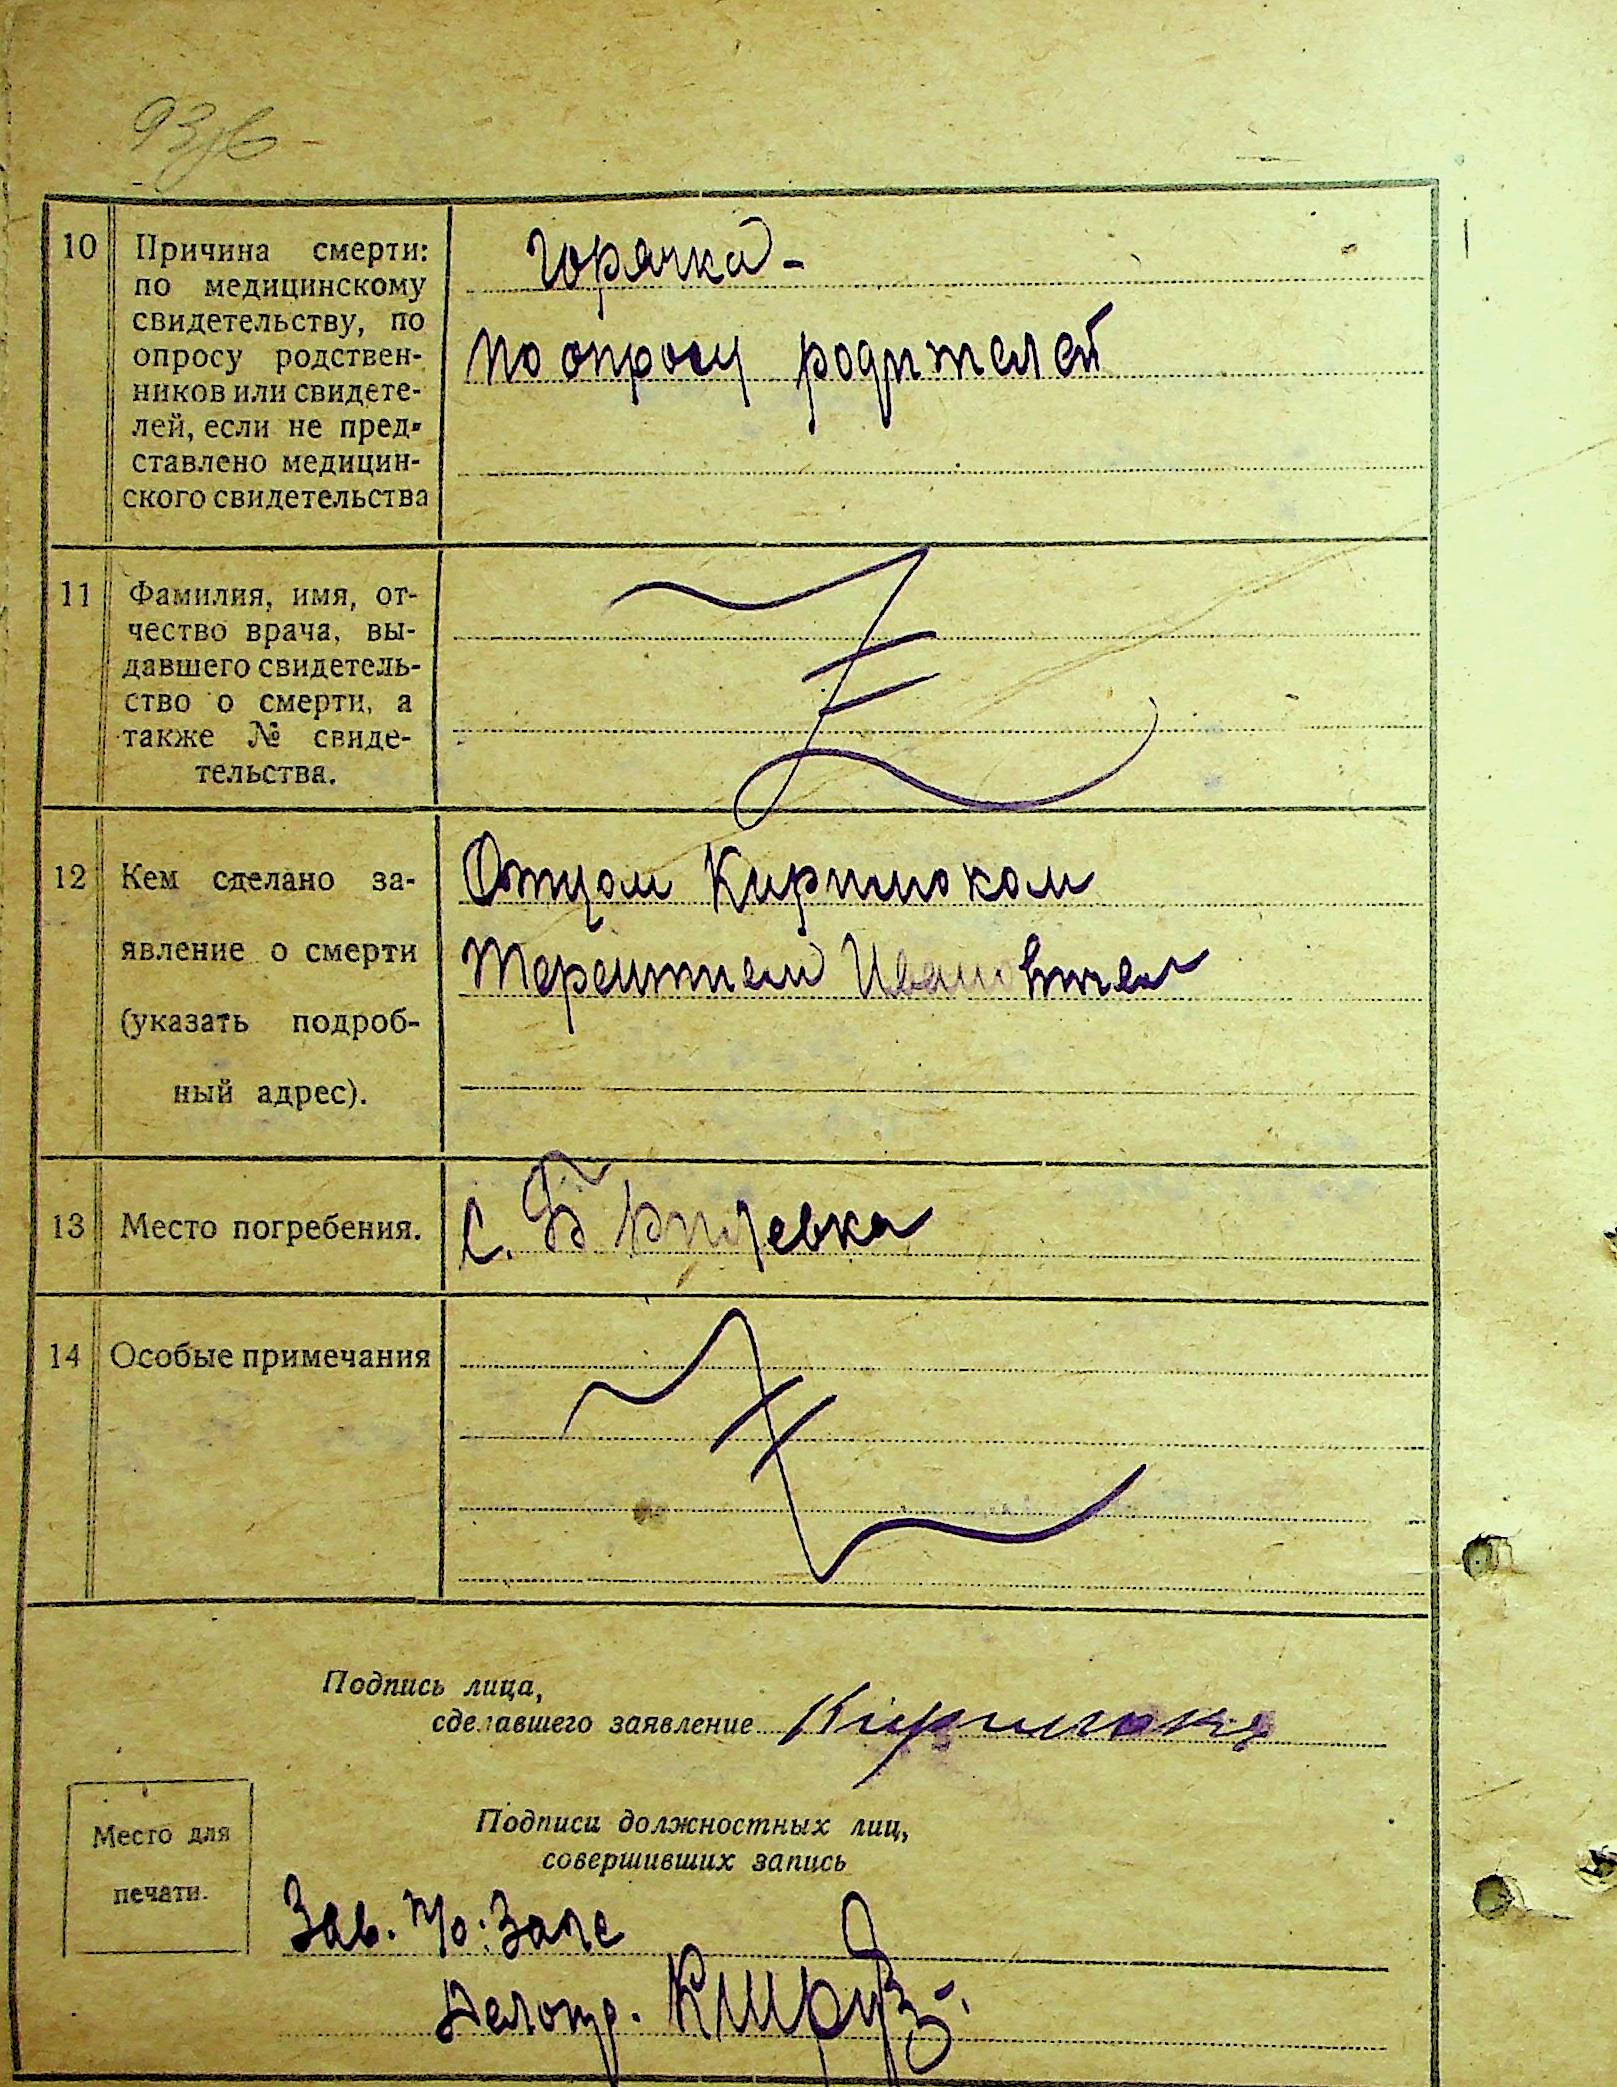 10 Причина смерти:
по медицинскому
свидетельству, по
опросу родствен-
ников или свидете-
лей, если не пред-
ставлено медицин-
ского свидетельства
Горячка -
по опросу родителей
11 Фамилия, имя, от-
чество врача, вы-
давшего свидетель-
ство о смерти, а
также № свиде-
тельства.
12 Кем сделано за-
явление о смерти
(указать подроб-
ный адрес).
Отцом
Терентием Ивановичем
13 Место погребения.
с.
14 Особые примечания
Подпись лица,
сделавшего заявление
Подписи должностных лиц,
совершивших запись
Место для
печати.
Зав. п/о. Загс
Делопр.